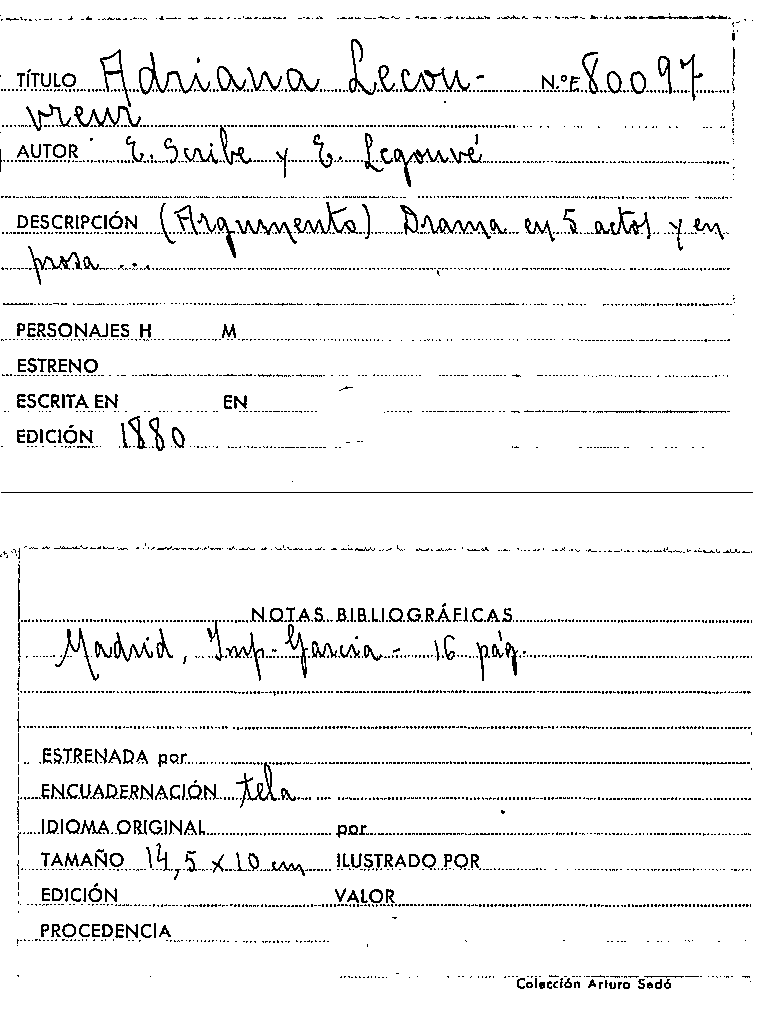 TÍTULO Adriana Lecou- N.º F 80097
vreur
AUTOR E. Scribe y E. Legouvé
DESCRIPCIÓN (Argumento) Drama en 5 actos y en
prosa ...
PERSONAJES H M
ESTRENO
ESCRITA EN EN
EDICIÓN 1880
NOTAS BIBLIOGRÁFICAS
Madrid, Imp. Garcia - 16 pág.
ESTRENADA por
ENCUADERNACIÓN tela
IDIOMA ORIGINAL por
TAMAÑO 14,5 x 10 cm ILUSTRADO POR
EDICIÓN VALOR
PROCEDENCIA
Colección Arturo Sedó